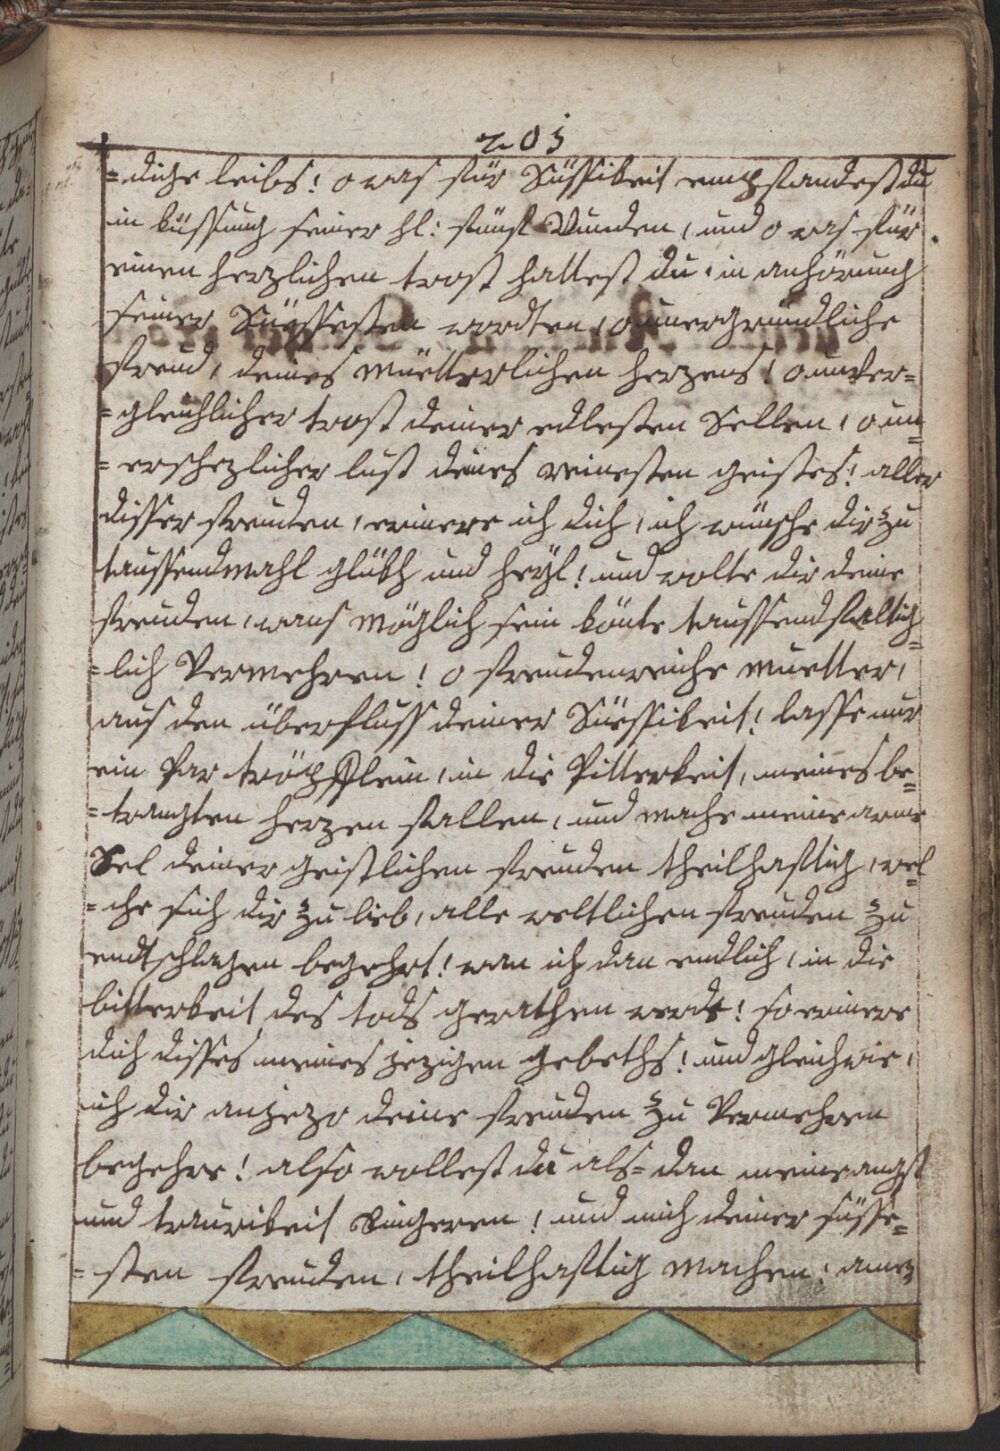 205
=dige leibs! o was für Süssikeit empfandest du
in küssung seiner hl: fünf Wunden, und o was für
einen herzlichen trost hattest du, in anhörung
seiner Süessesten wordten, o unergründliche
freud, deines müetterlichen herzens! o unver=
=gleichlicher trost deiner edlesten Sellen, o un=
=erschezlicher lust deines reinesten geistes! aller
disser freuden, erinere ich dich, ich wünsche dir zu
taussendmahl glükh und heyl! und wolte dir deine
freuden, wans möglich sein könte taussendfeltig=
=lich Vermehren! o freudenreiche muetter,
aus den überfluss deiner Süessikeit! lasse nur
ein Par tröpfflein, in die Pitterkeit, meines be=
=trangten herzen fallen, und mache meine arme
Sel deiner geistlichen freuden theilhafftig, wel=
=che sich dir zu lieb, alle weltlichen freuden zu
endtschlagen begehrt! wan ich dan endlich, in die
bitterkeit des tods gerathen werde! so erinere
dich disses meines jezigen gebeths! und gleich wie,
ich dir anjezo deine freuden zu Vermehren
begehre! also wollest du als=dan meine angst
und traurikeit Ringeren! und mich deiner süsse=
=sten freuden, theilhafftig machen! amen